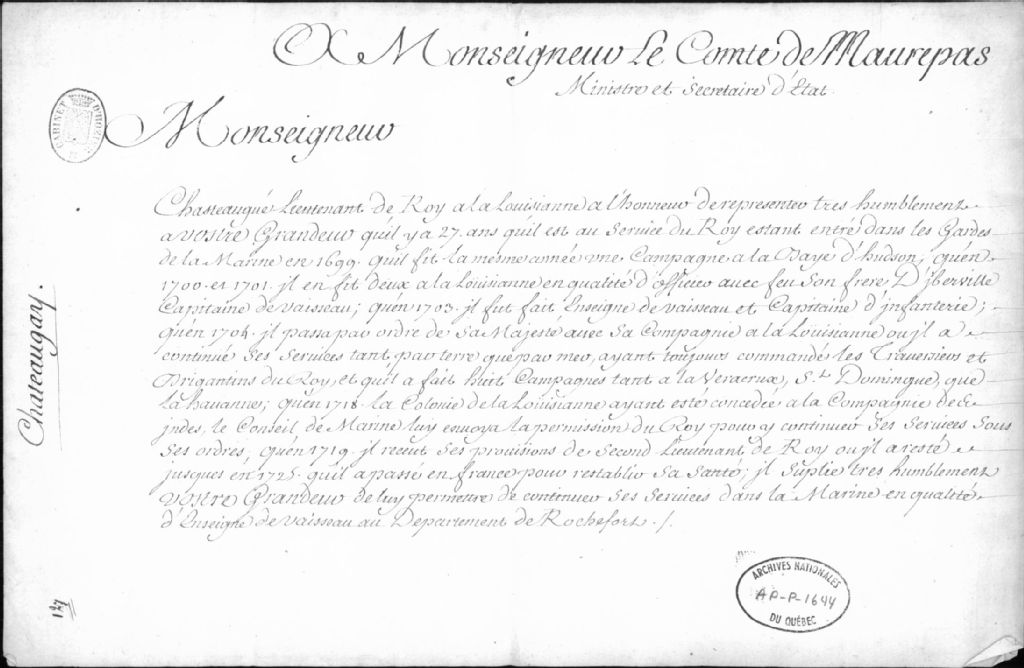 A Monseigneur Le Comte de Maurepas
Ministre et Secretaire d'État.
CABINET D'HOZIER
Monseigneur
Chasteaugué Lieutenant de Roy a la Louisianne a l'honneur de representer tres humblement
a vostre Grandeur qu'il y a 27. ans qu'il est au Service du Roy estant entré dans les Gardes
de la Marine en 1699. qu'il fit la mesme année une Campagne a la Baye d'hudson; qu'en
1700. et 1701. il en fit deux a la Louisianne en qualité d'officier avec feu Son frere D'jberville
Capitaine de vaisseau; qu'en 1703. jl fut fait Enseigne de vaisseau et Capitaine d'infanterie;
qu'en 1704. jl passa par ordre de Sa Majesté avec Sa Compagnie a la Louisianne ou jl a
continué Ses Services tant par terre que par mer, ayant toujours commandé les Traversiers et
Brigantins du Roy, et qu'il a fait huit Campagnes tant a la Veracrux, St. Domingue, que
la havanne; qu'en 1718. la Colonie de la Louisianne ayant esté concedée a la Compagnie des
jndes, le Conseil de Marine luy envoya la permission du Roy pour y continuer Ses Services Sous
Ses ordres, qu'en 1719. jl receut Ses provisions de Second Lieutenant de Roy ou jl a resté
jusques en 1725. qu'il a passé en france pour restablir Sa Santé; jl Suplie tres humblement
Vostre Grandeur de luy permettre de continuer Ses Services dans la Marine en qualité
d'Enseigne de vaisseau au Departement de Rochefort. /.
Chateaugay.
127
ARCHIVES NATIONALES
AP-P-1644
DU QUÉBEC